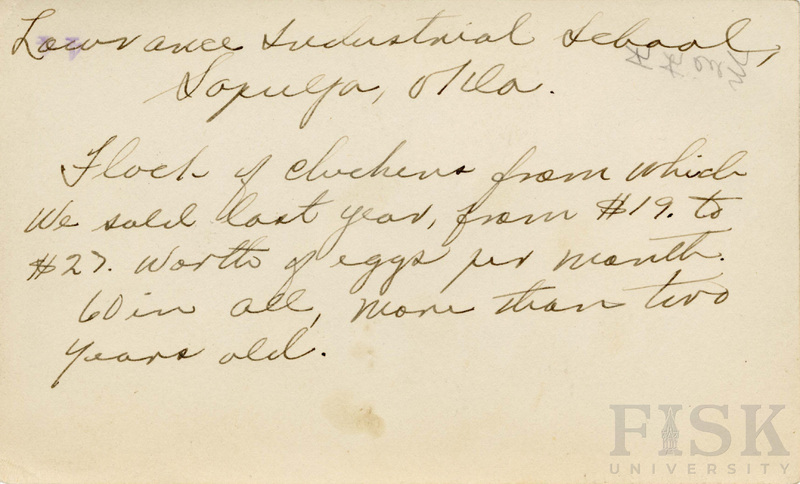 Lowrance Industrial School,
Sapulpa, Okla.
Flock of chickens from which
We sold last year, from $19. to
$27. Worth of eggs per month.
60 in all, more than two
years old.
FISK
UNIVERSITY